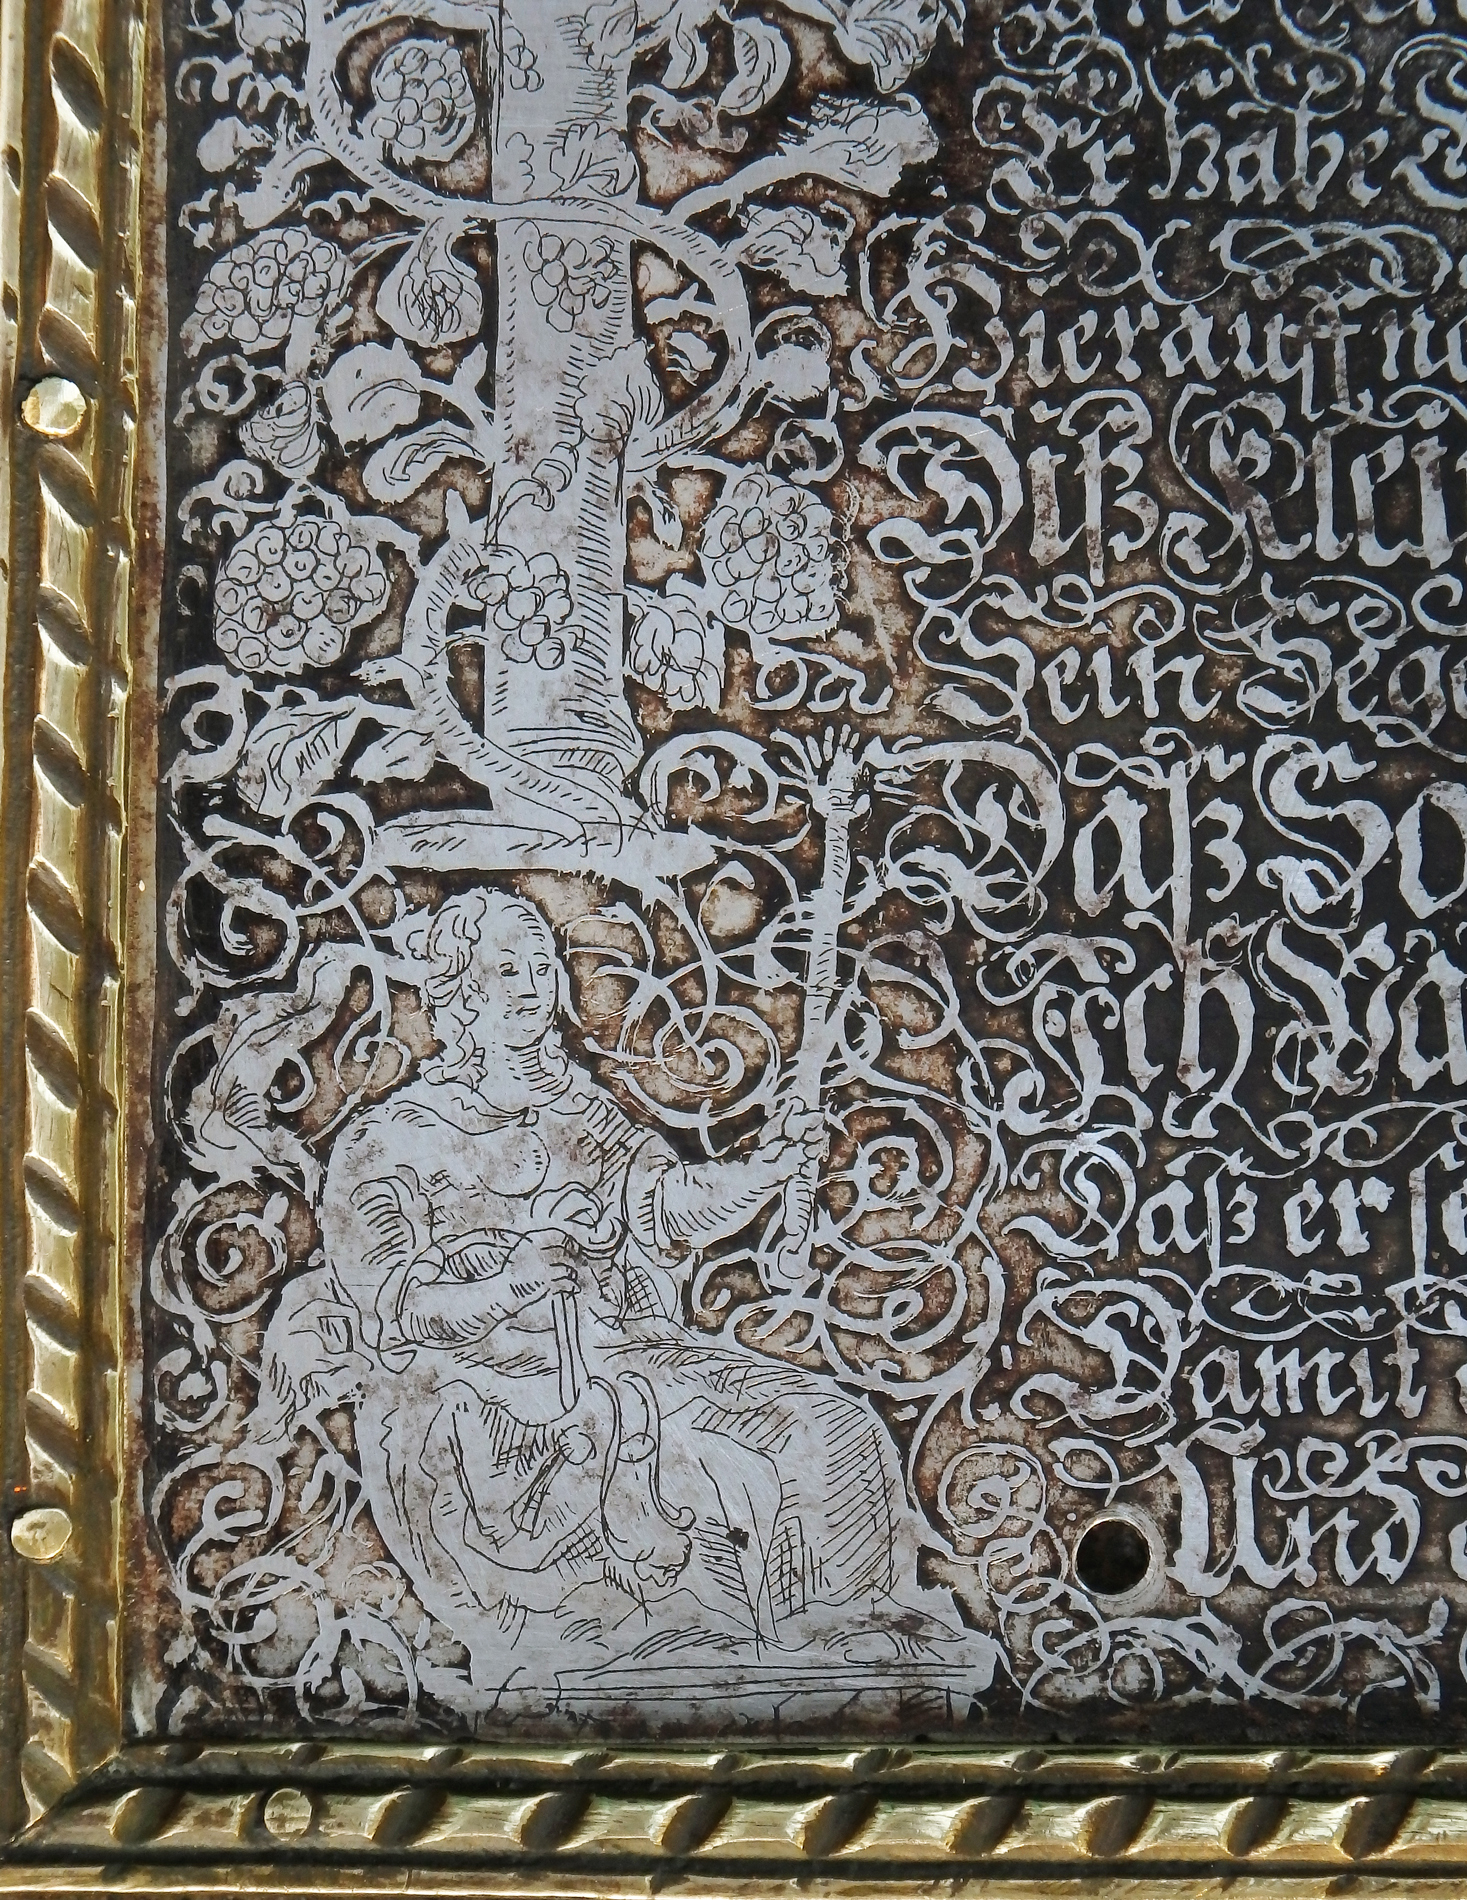 Er habe
Hierauff
Diß Klei
Sein Sege
Daß So
Ich
Daß er se
Damit
Und